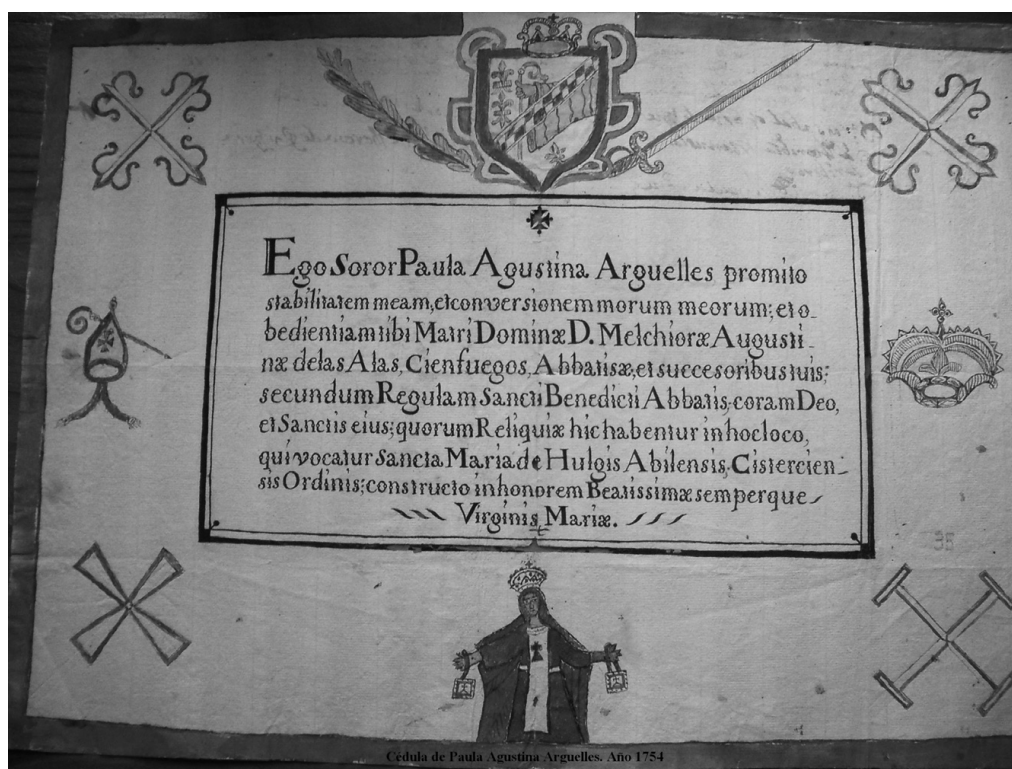 Ego Soror Paula Agustina Arguelles promito
stabilitatem meam, et conversionem morum meorum; et o-
bedientiam tibi Matri Dominæ D. Melchioræ Augusti-
næ de las Alas, Cienfuegos, Abbatisæ, et succesoribus tuis;
secundum Regulam Sancti Benedicti Abbatis, coram Deo,
et Sanctis eius; quorum Reliquiæ hic habentur in hoc loco,
qui vocatur Sancta Maria de Hulgis Abilensis, Cistercien-
sis Ordinis; constructo in honorem Beatissimæ semperque
Virginis Mariæ.
Cédula de Paula Agustina Arguelles. Año 1754